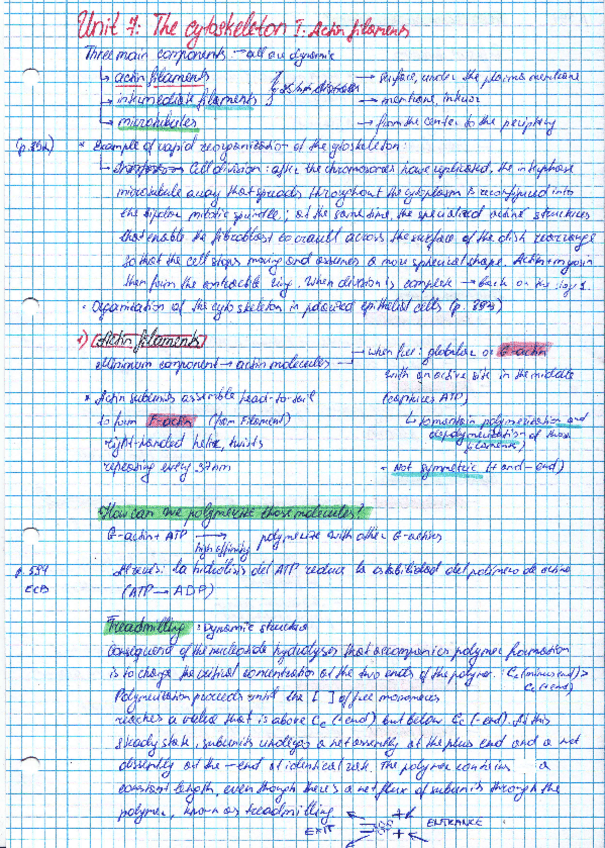 Unit 7: The cytoskeleton I: Actin filaments
Three main components: → all are dynamic
↳ actin filaments → surface, under the plasma membrane
↳ intermediate filaments → membrane, interior
↳ microtubules → from the center to the periphery
(p. 892) * Example of rapid reorganization of the cytoskeleton:
↳ Cell division: after the chromosomes have replicated, the interphase
microtubule array that spreads throughout the cytoplasm is reconfigured into
the bipolar mitotic spindle; at the same time, the specialized actine structures
that enable the fibroblast to crawl across the surface of the dish rearrange
so that the cell stops moving and assumes a more spherical shape. Actin + myosin
then form the contractile ring. When division is complete → back on
· Organization of the cytoskeleton in polarized epithelial cells (p. 893)
1) Actin filaments
Minimum component → actin molecules → when free: globular or G-actin
with an active site in the middle
(captures ATP)
* Actin subunits assemble head-to-tail
to form F-actin (from Filament)
↳ to maintain polymerization and
depolymerization of those
filaments)
right-handed helix, twists
repeating every 37nm
- Not symmetric (+ and - end)
How can we polymerize those molecules?
G-actin + ATP → polymerize with other G-actins
high affinity
p. 599 Al revés: la hidrólisis del ATP reduce la estabilidad del polímero de actina
ECB (ATP → ADP)
Treadmilling: Dynamic structure
Consequence of the nucleotide hydrolysis that accompanies polymer formation
is to change the critical concentration at the two ends of the polymer: Cc (minus end) >
Cc (+ end)
Polymerization proceeds until the [ ] of free monomers
reaches a value that is above Cc (+ end) but below Cc (- end). At this
steady state, subunits undergo a net assembly at the plus end and a net
at the - end at identical rate. The polymer contains a
constant length, even though there's a net flux of subunits through the
polymer, known as treadmilling
EXIT - + ENTRANCE
- +